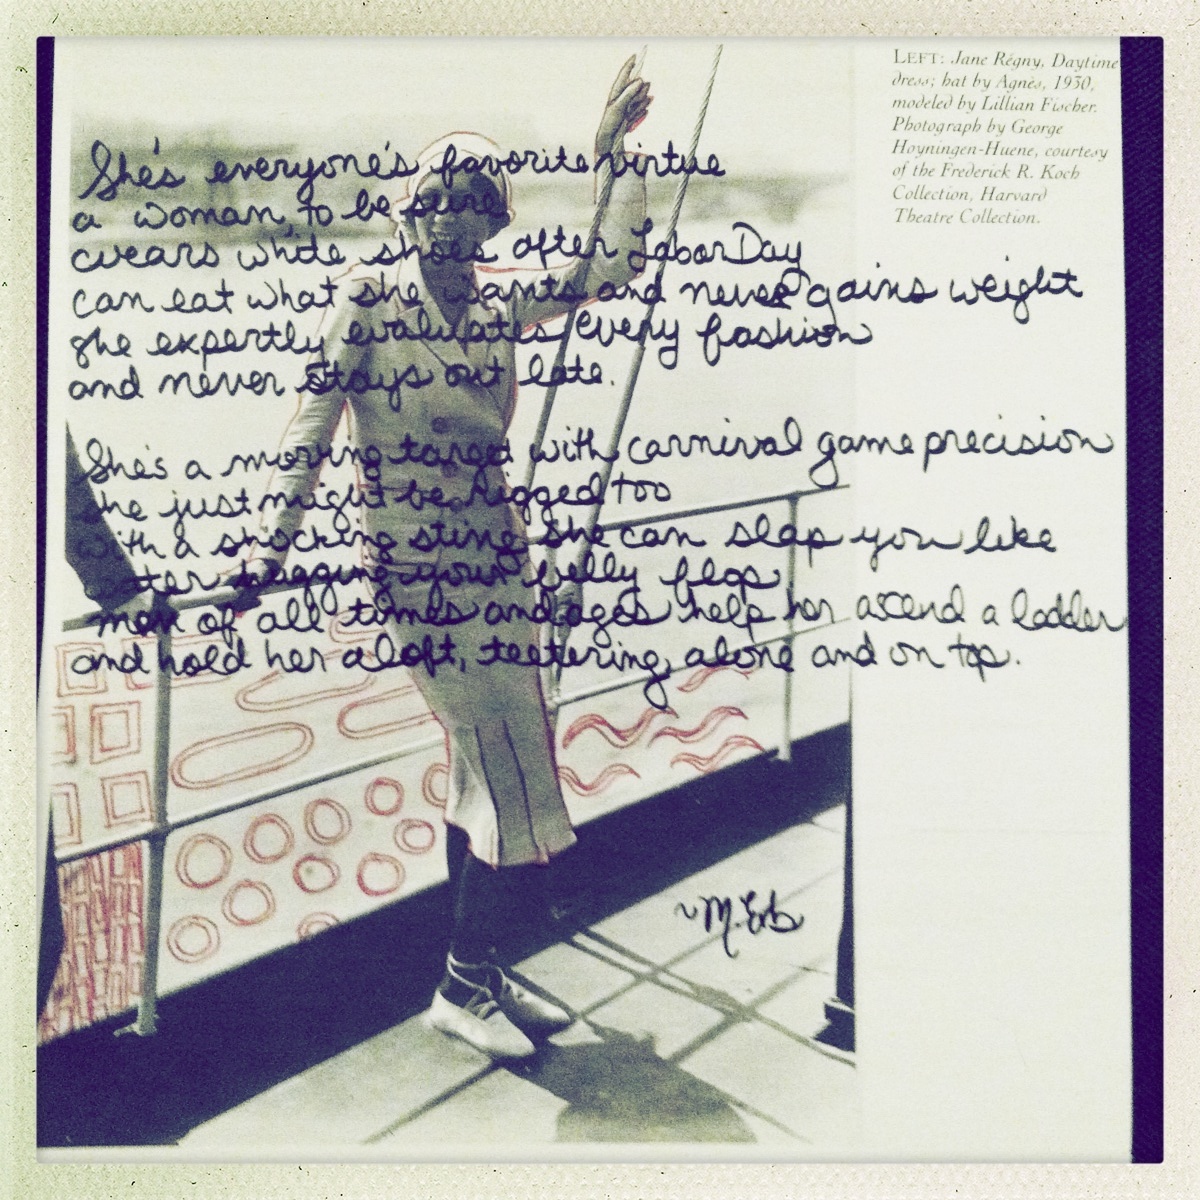 LEFT: Jane Régny, Daytime
dress; hat by Agnès, 1930,
modeled by Lillian Fischer.
Photograph by George
Hoyningen-Huene, courtesy
of the Frederick R. Koch
Collection, Harvard
Theatre Collection.
She's everyone's favorite virtue
a woman, to be sure
wears white shoes after Labor Day
can eat what she wants and never gains weight
she expertly evaluates every fashion
and never stays out late.
She's a moving target with carnival game precision
she just might be rigged too
with a shocking sting she can slap you like
water hugging your belly flop
men of all times and ages help her ascend a ladder
and hold her aloft, teetering, alone and on top.
~M. Erb